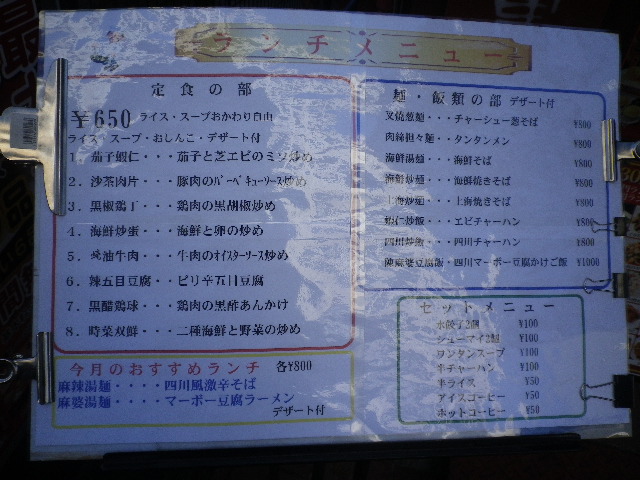 ランチメニュー
定食の部
¥650 ライス・スープおかわり自由
ライス・スープ・おしんこ・デザート付
1．茄子蝦仁・・・茄子と芝エビのミソ炒め
2．沙茶肉片・・・豚肉のバーベキューソース炒め
3．黒椒鶏丁・・・鶏肉の黒胡椒炒め
4．海鮮炒蛋・・・海鮮と卵の炒め
5．蠔油牛肉・・・牛肉のオイスターソース炒め
6．辣五目豆腐・・・ピリ辛五目豆腐
7．黒醋鶏球・・・鶏肉の黒酢あんかけ
8．時菜双鮮・・・二種海鮮と野菜の炒め
今月のおすすめランチ 各¥800
麻辣湯麺・・・・四川風激辛そば
麻婆湯麺・・・・マーボー豆腐ラーメン
デザート付
麺・飯類の部 デザート付
叉焼葱麺・・・チャーシュー葱そば ¥800
肉絲担々麺・・・タンタンメン ¥800
海鮮湯麺・・・海鮮そば ¥800
海鮮炒麺・・・海鮮焼きそば ¥800
上海炒麺・・・上海焼きそば ¥800
蝦仁炒飯・・・エビチャーハン ¥800
四川炒飯・・・四川チャーハン ¥800
陳麻婆豆腐飯・四川マーボー豆腐かけご飯 ¥1000
セットメニュー
水餃子2個 ¥100
シューマイ2個 ¥100
ワンタンスープ ¥100
半チャーハン ¥100
半ライス ¥50
アイスコーヒー ¥50
ホットコーヒー ¥50